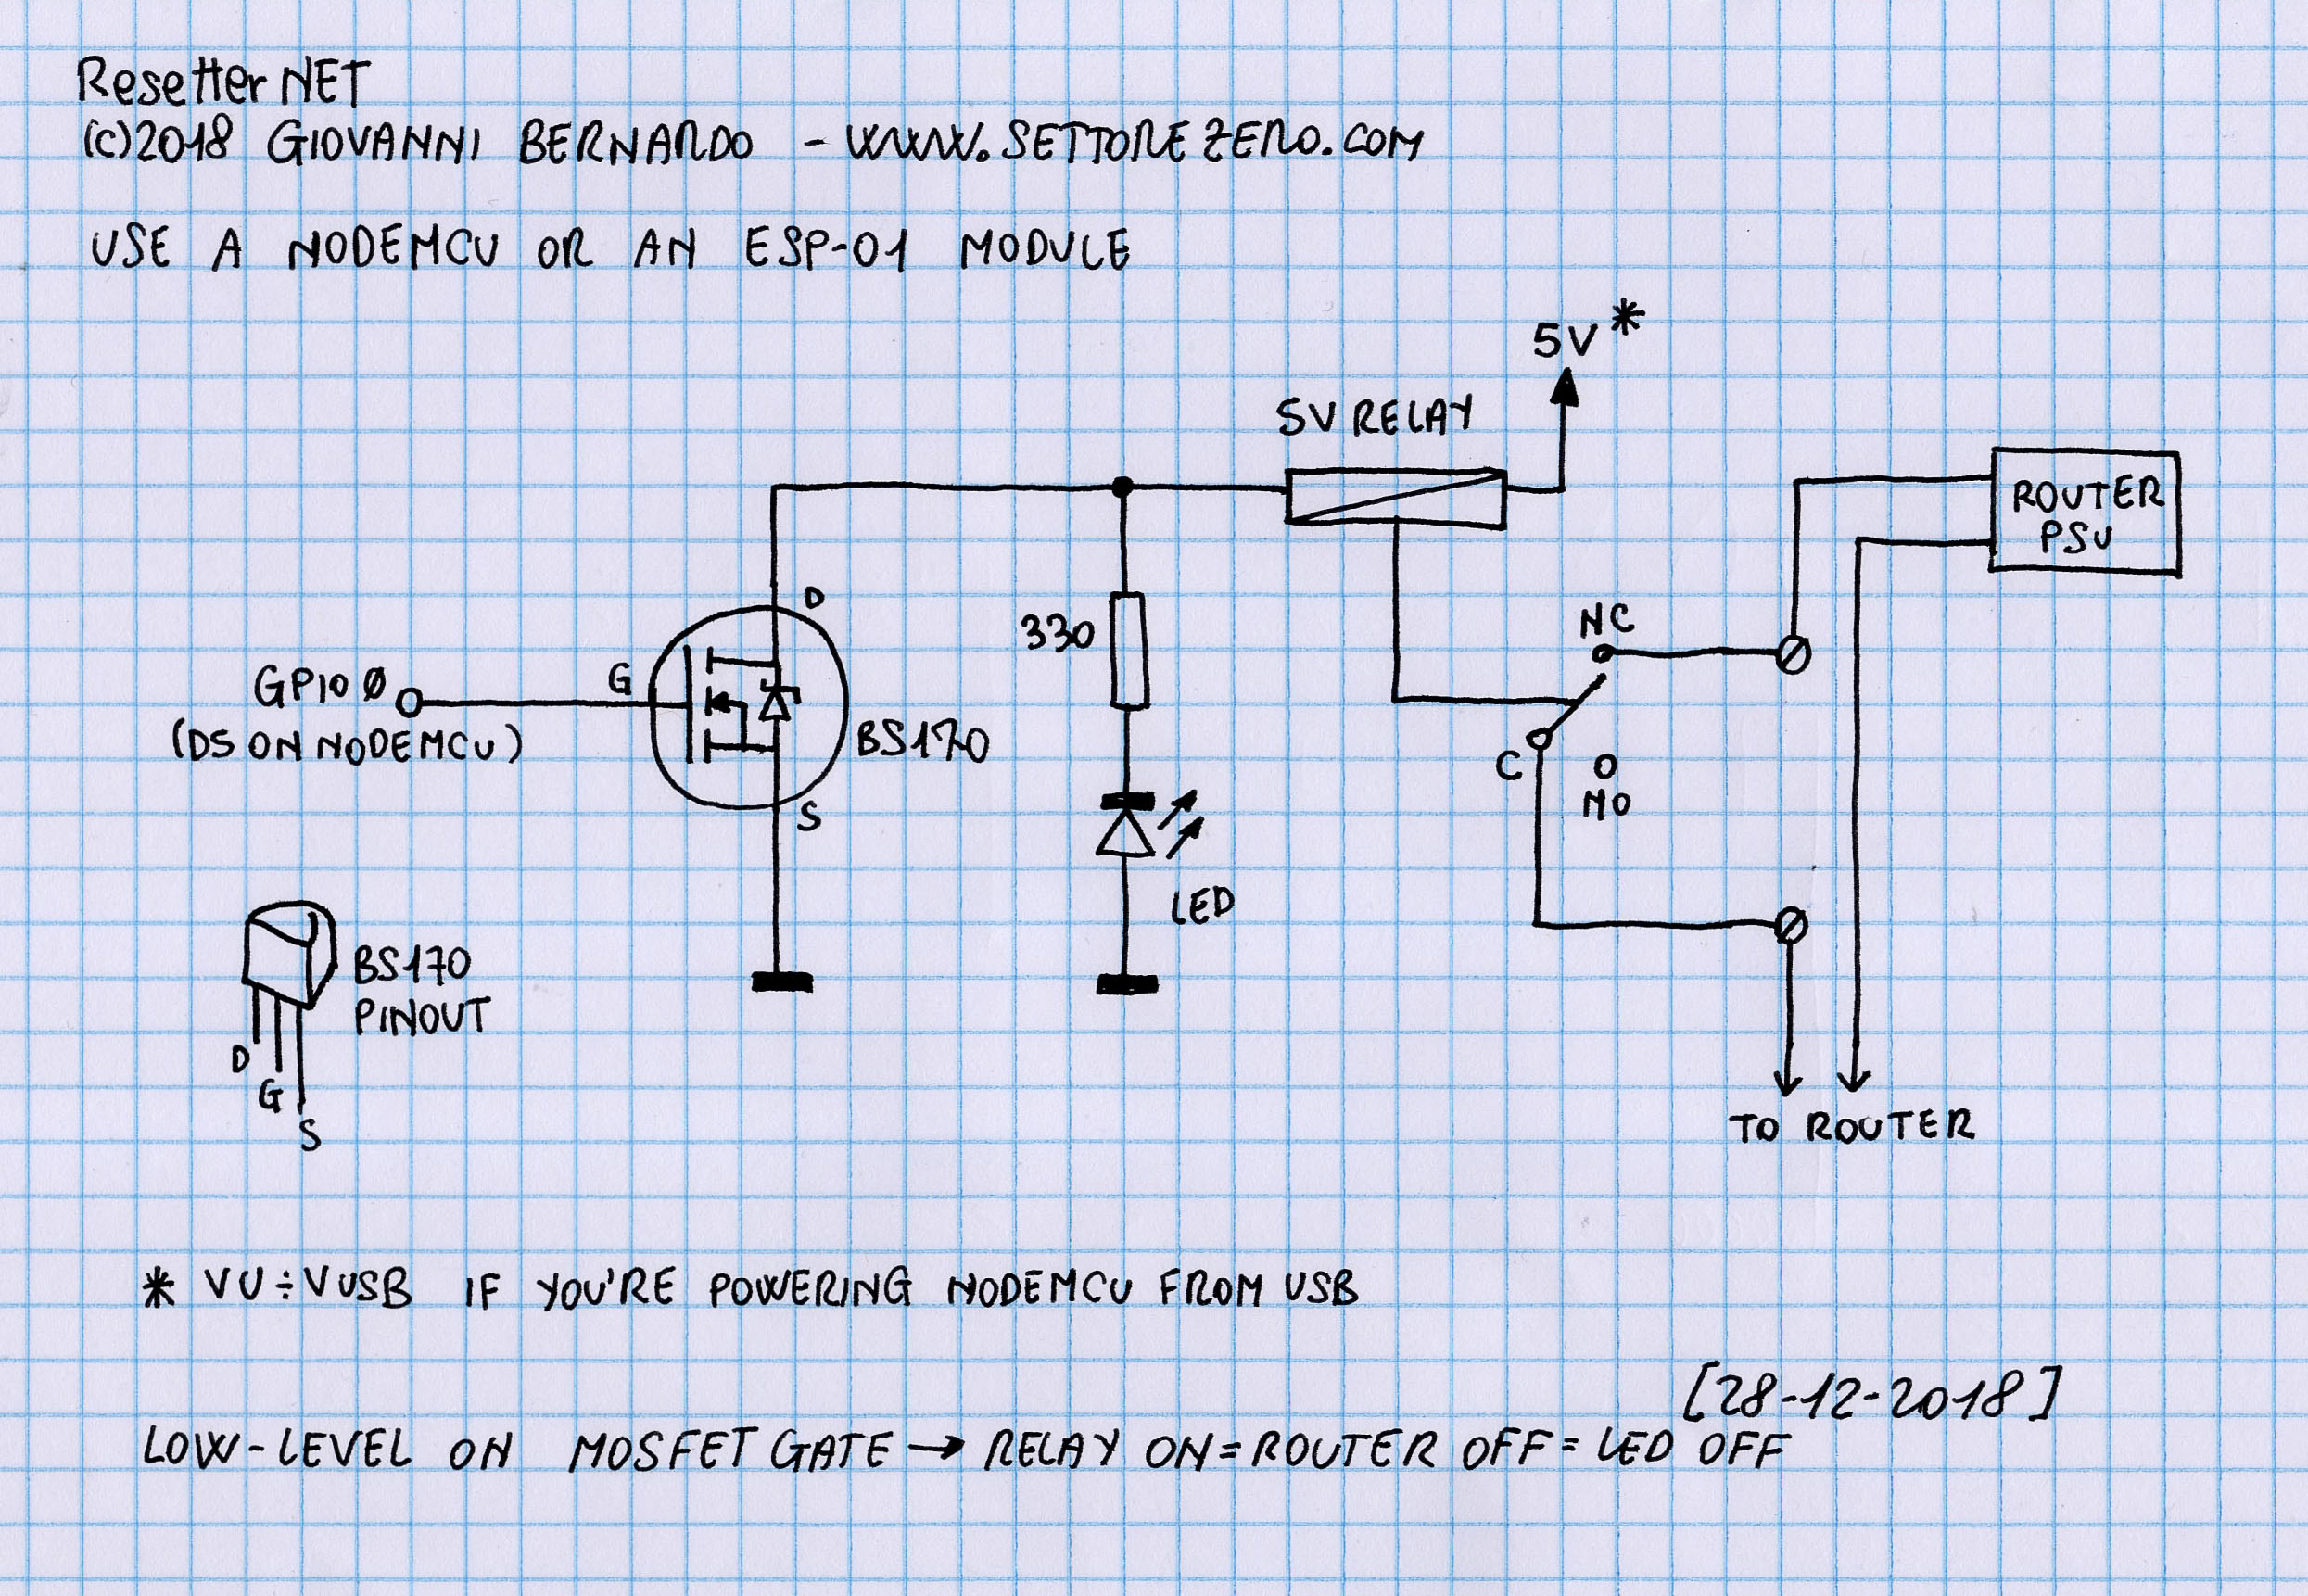 Resetter NET
(C)2018 GIOVANNI BERNARDO - WWW.SETTOREZERO.COM
USE A NODEMCU OR AN ESP-01 MODULE
5V *
5V RELAY
ROUTER
PSU
D
330
NC
GPIO 0
G
(D5 ON NODEMCU)
BS170
C
NO
S
LED
BS170
PINOUT
D
G
S
TO ROUTER
* VU÷VUSB IF YOU'RE POWERING NODEMCU FROM USB
[28-12-2018]
LOW-LEVEL ON MOSFET GATE → RELAY ON = ROUTER OFF = LED OFF